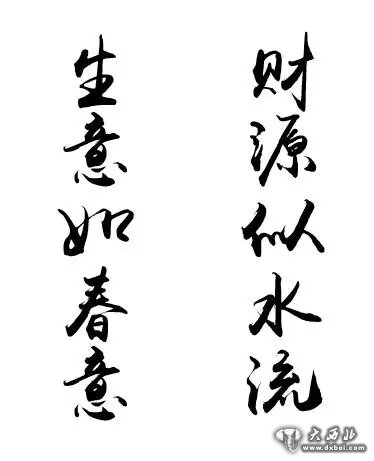 财源似水流
生意如春意
大西北
www.dxbei.com